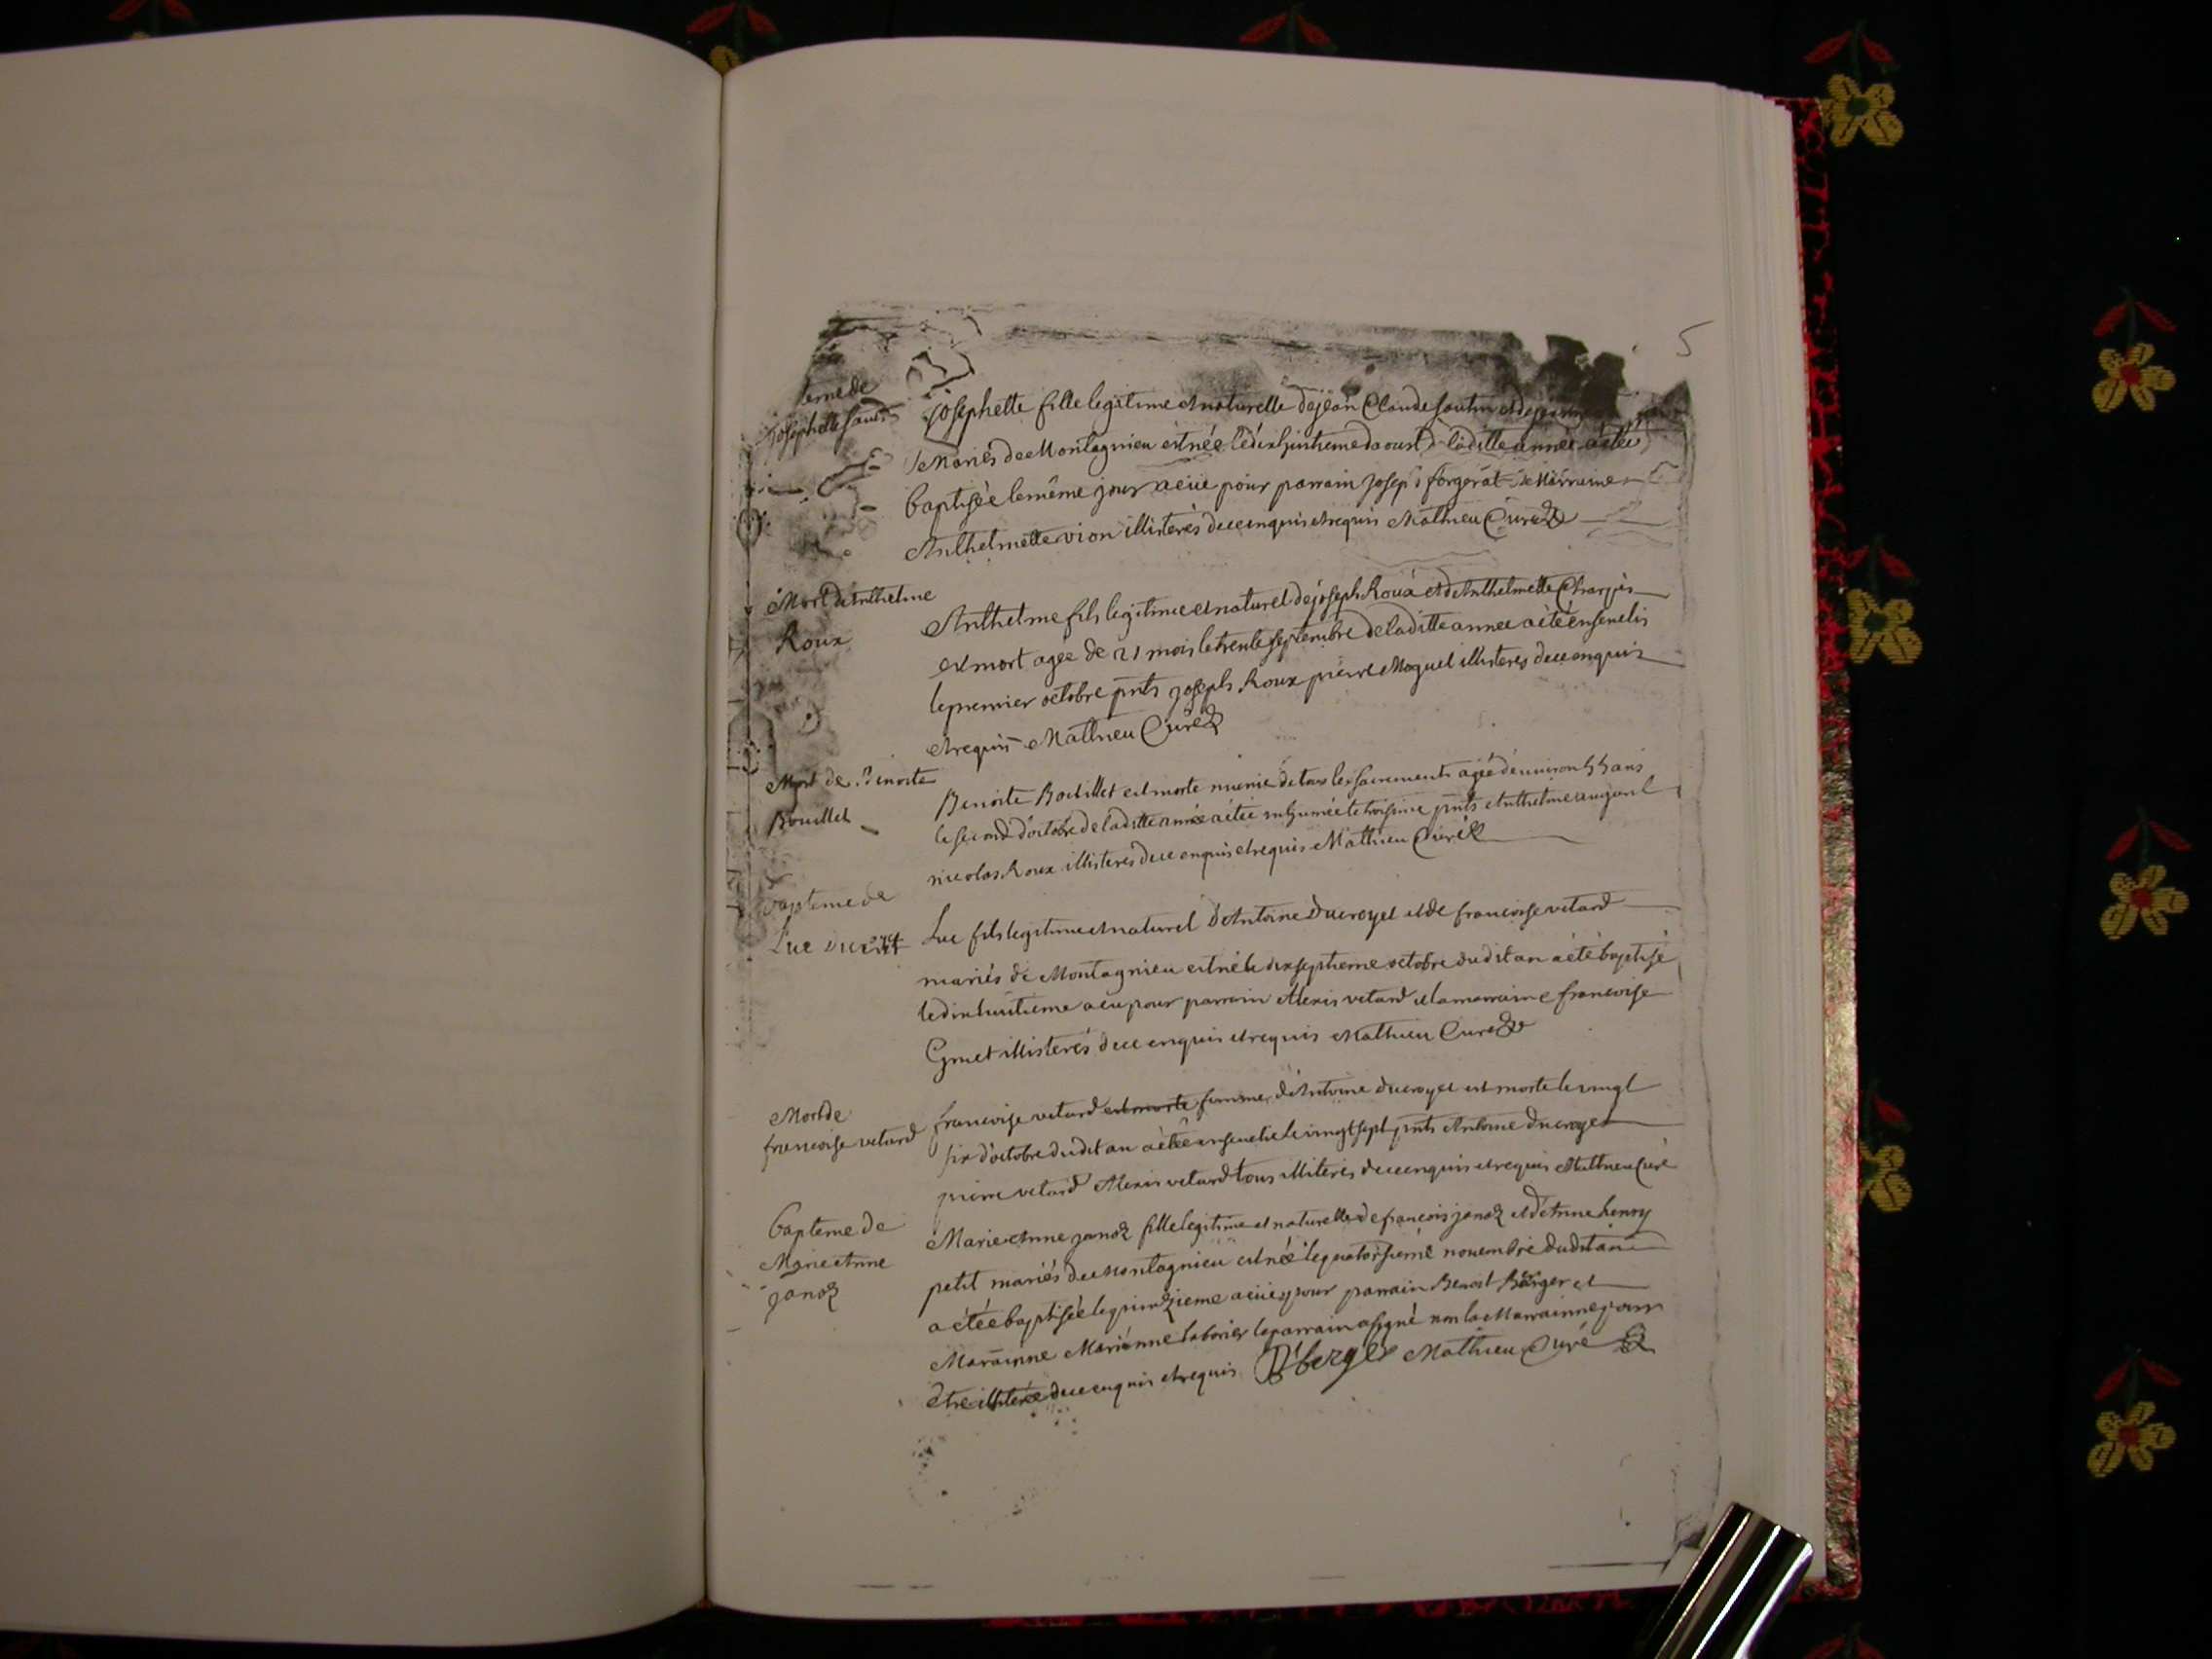 5
teme de
josephette
josephette fille legitime et naturelle de jean Claude
Mariés de Montagnieu est née le dixhuitieme daoust de laditte année a étée
baptisée le même jour a eüe pour parrain joseph forgerat Marraine
Anthelmette vion illiterés de ce enquis et requis Mathieu Curé
Mort danthelme
Roux
Anthelme fils legitime et naturel de joseph Roux et d'Anthelmette
est mort agee de 21 mois le trente septembre de laditte annee a été enseveli
le premier octobre pnts joseph Roux pierre Moguel illiteres de ce enquis
et requis Mathieu Curé
Mort de Benoite
Bouillet
Benoite Bouillet est morte munie de tous les sacrements agée denviron 55 ans
le second d'octobre de laditte année a étée inhumée le troisieme pnts Anthelme
nicolas Roux illiteres de ce enquis et requis Mathieu Curé
Bapteme de
Luc
Luc fils legitime et naturel d'Antoine Ducroyet et de francoise vetard
mariés de Montagnieu est né le dix septieme octobre dudit an a été baptisé
le dixhuitieme a eu pour parrain Alexis vetard et la marraine francoise
Gruet illiterés de ce enquis et requis Mathieu Curé
Mort de
francoise vetard
francoise vetard est morte femme d'Antoine ducroyet est morte le vingt
six d'octobre dudit an a étée ensevelie le vingt sept pnts Antoine ducroyet
pierre vetard Alexis vetard tous illiterés de ce enquis et requis Mathieu Curé
bapteme de
Marie Anne
janoz
Marie Anne janoz fille legitime et naturelle de francois janoz et d'Anne henry
petit mariés de Montagnieu est née le quatorsieme novembre dudit an
a étée baptisée le quinzieme a eüe pour parrain Benoit Berger et
Maraine Marianne laborier le parrain a signé non la Marrainne pour
être illiterée de ce enquis et requis B berger Mathieu Curé